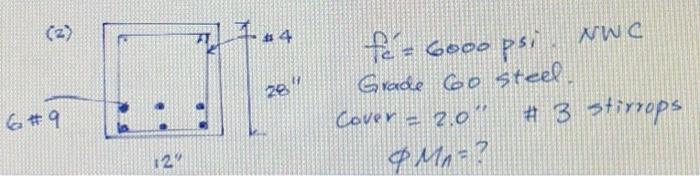 (2)
#4
f'c = 6000 psi. NWC
28"
Grade 60 steel.
6#9
Cover = 2.0" #3 stirrops
12"
φMn=?